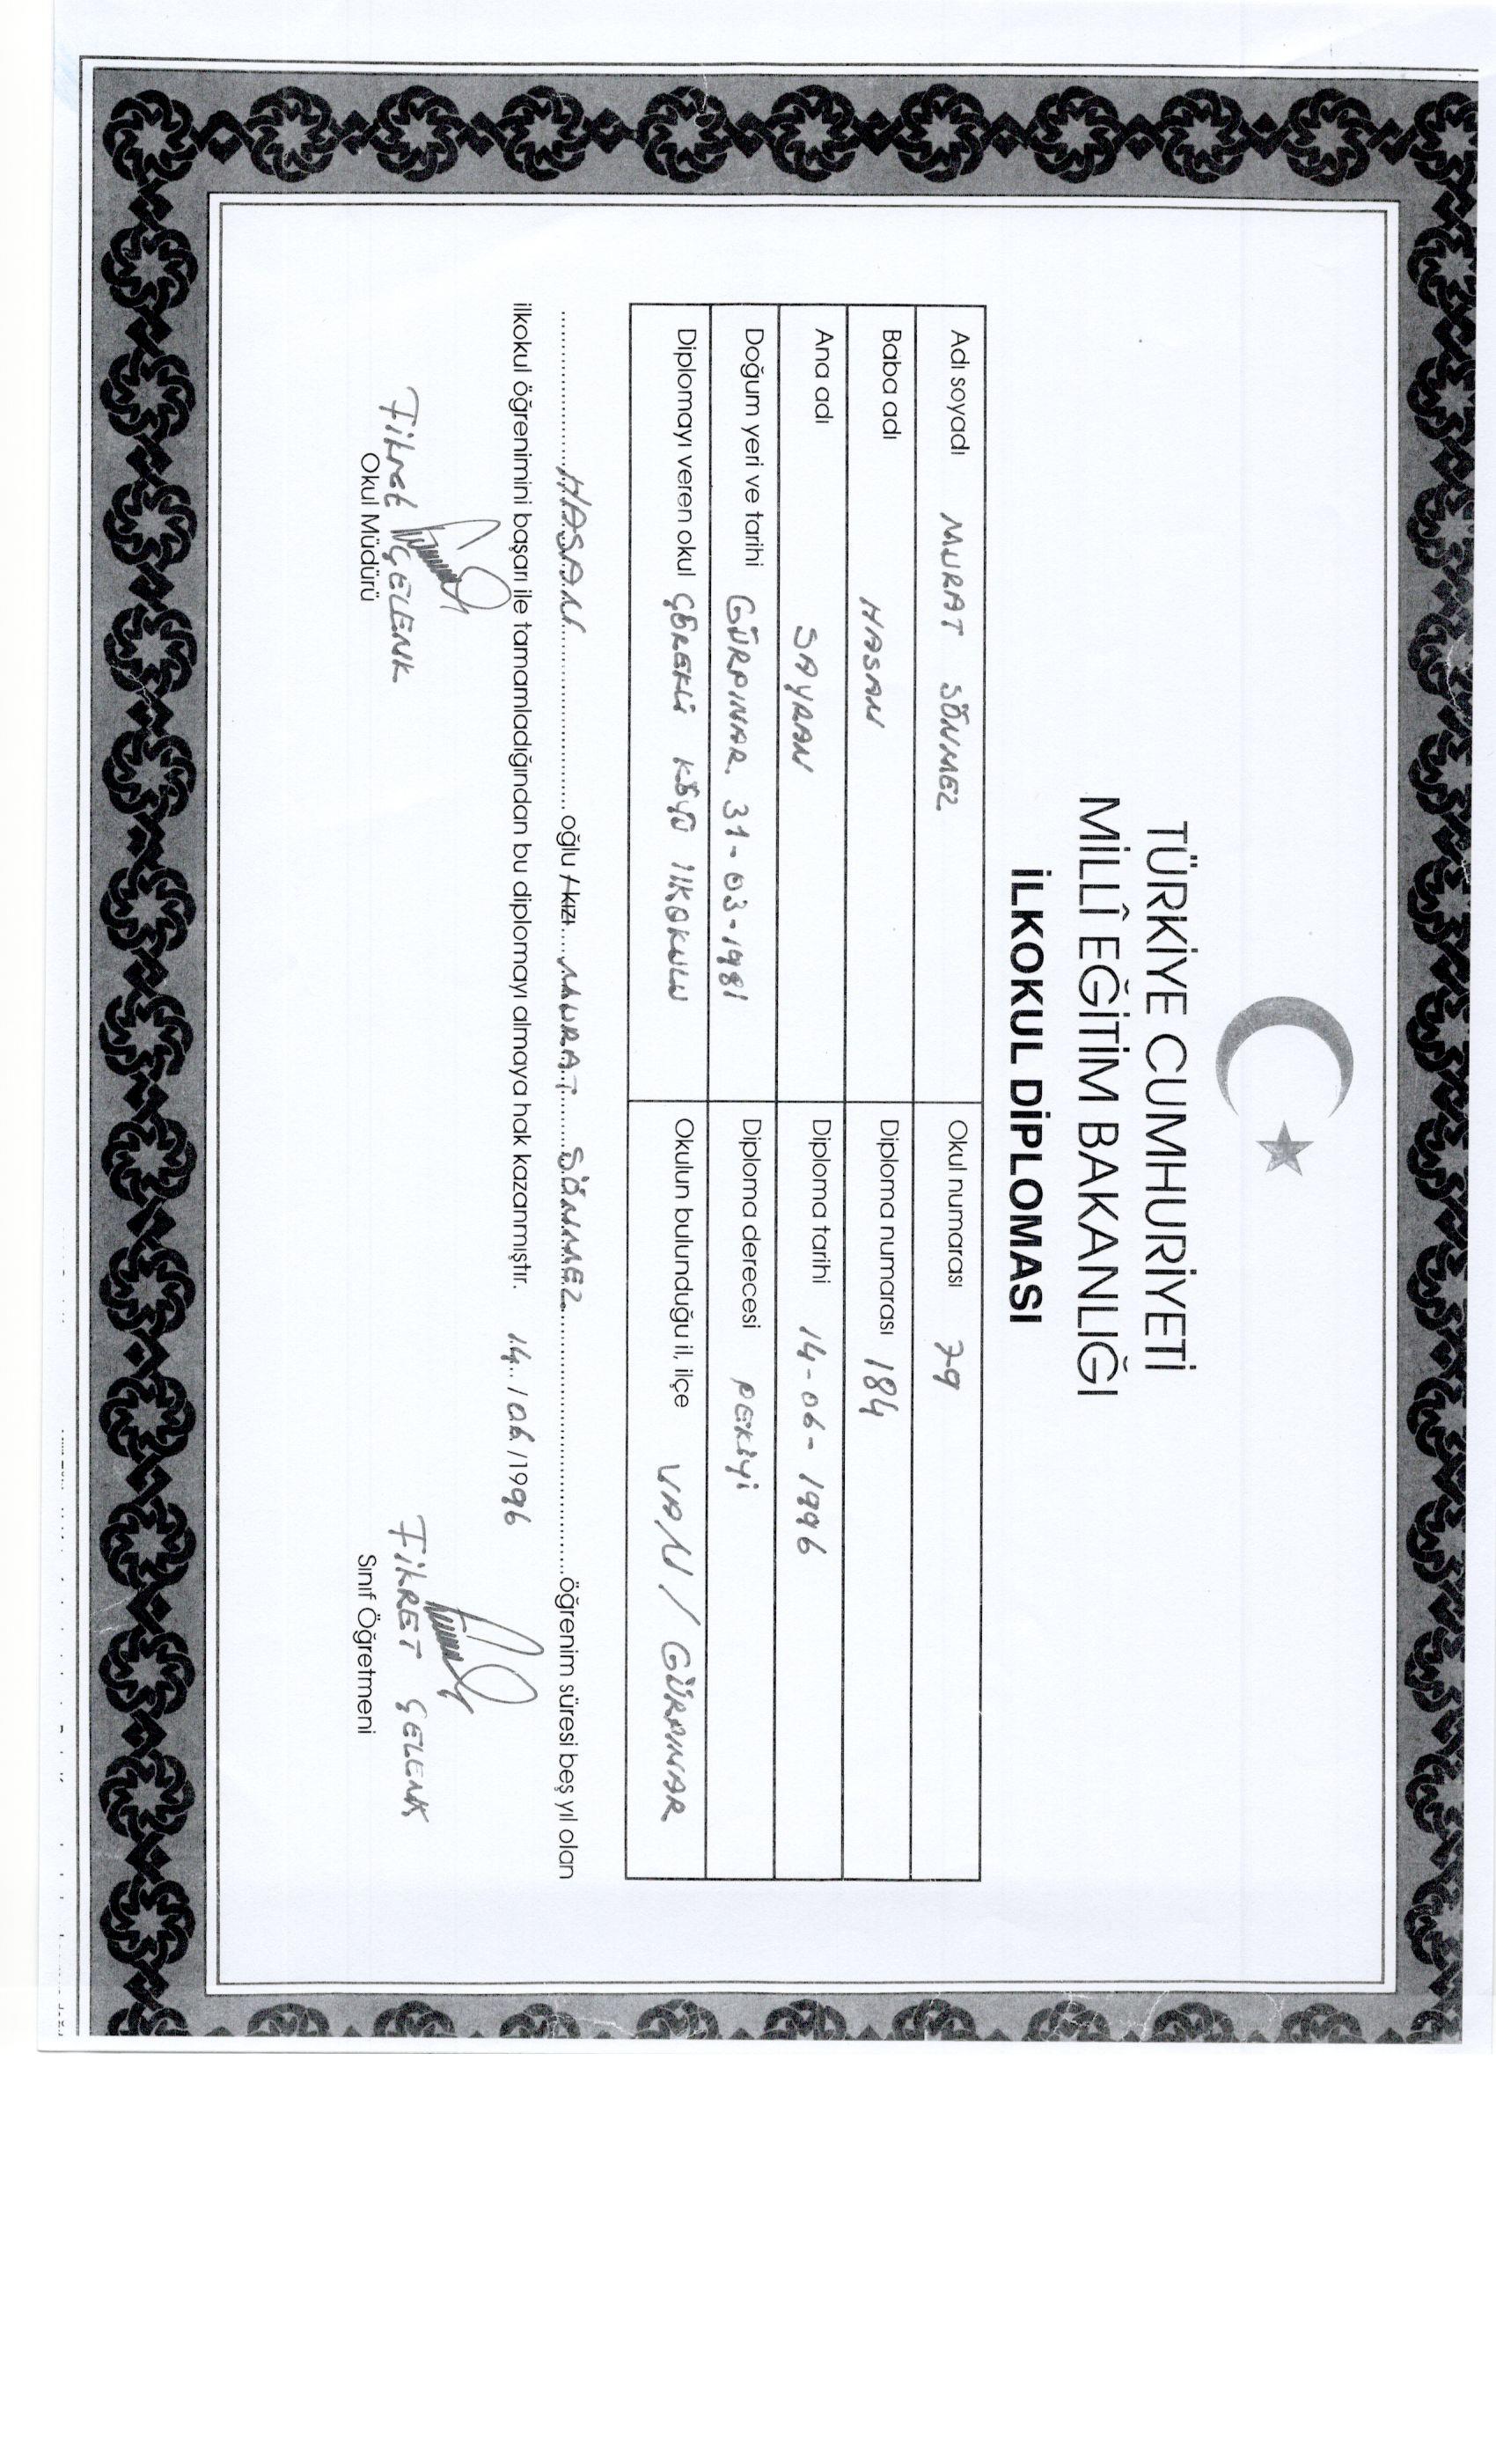 TÜRKİYE CUMHURİYETİ
MİLLÎ EĞİTİM BAKANLIĞI
İLKOKUL DİPLOMASI
Adı soyadı MURAT SÖNMEZ Okul numarası 79
Baba adı HASAN Diploma numarası 184
Ana adı SAYRAN Diploma tarihi 14-06-1996
Doğum yeri ve tarihi GÜRPINAR. 31-03-1981 Diploma derecesi PEKİYİ
Diplomayı veren okul ÇÖREKLİ KÖYÜ İLKOKULU Okulun bulunduğu il, ilçe VAN / GÜRPINAR
HASAN oğlu / kızı MURAT SÖNMEZ öğrenim süresi beş yıl olan
ilkokul öğrenimini başarı ile tamamladığından bu diplomayı almaya hak kazanmıştır. 14 / 06 / 1996
Fikret ÇELENK FİKRET ÇELENK
Okul Müdürü Sınıf Öğretmeni